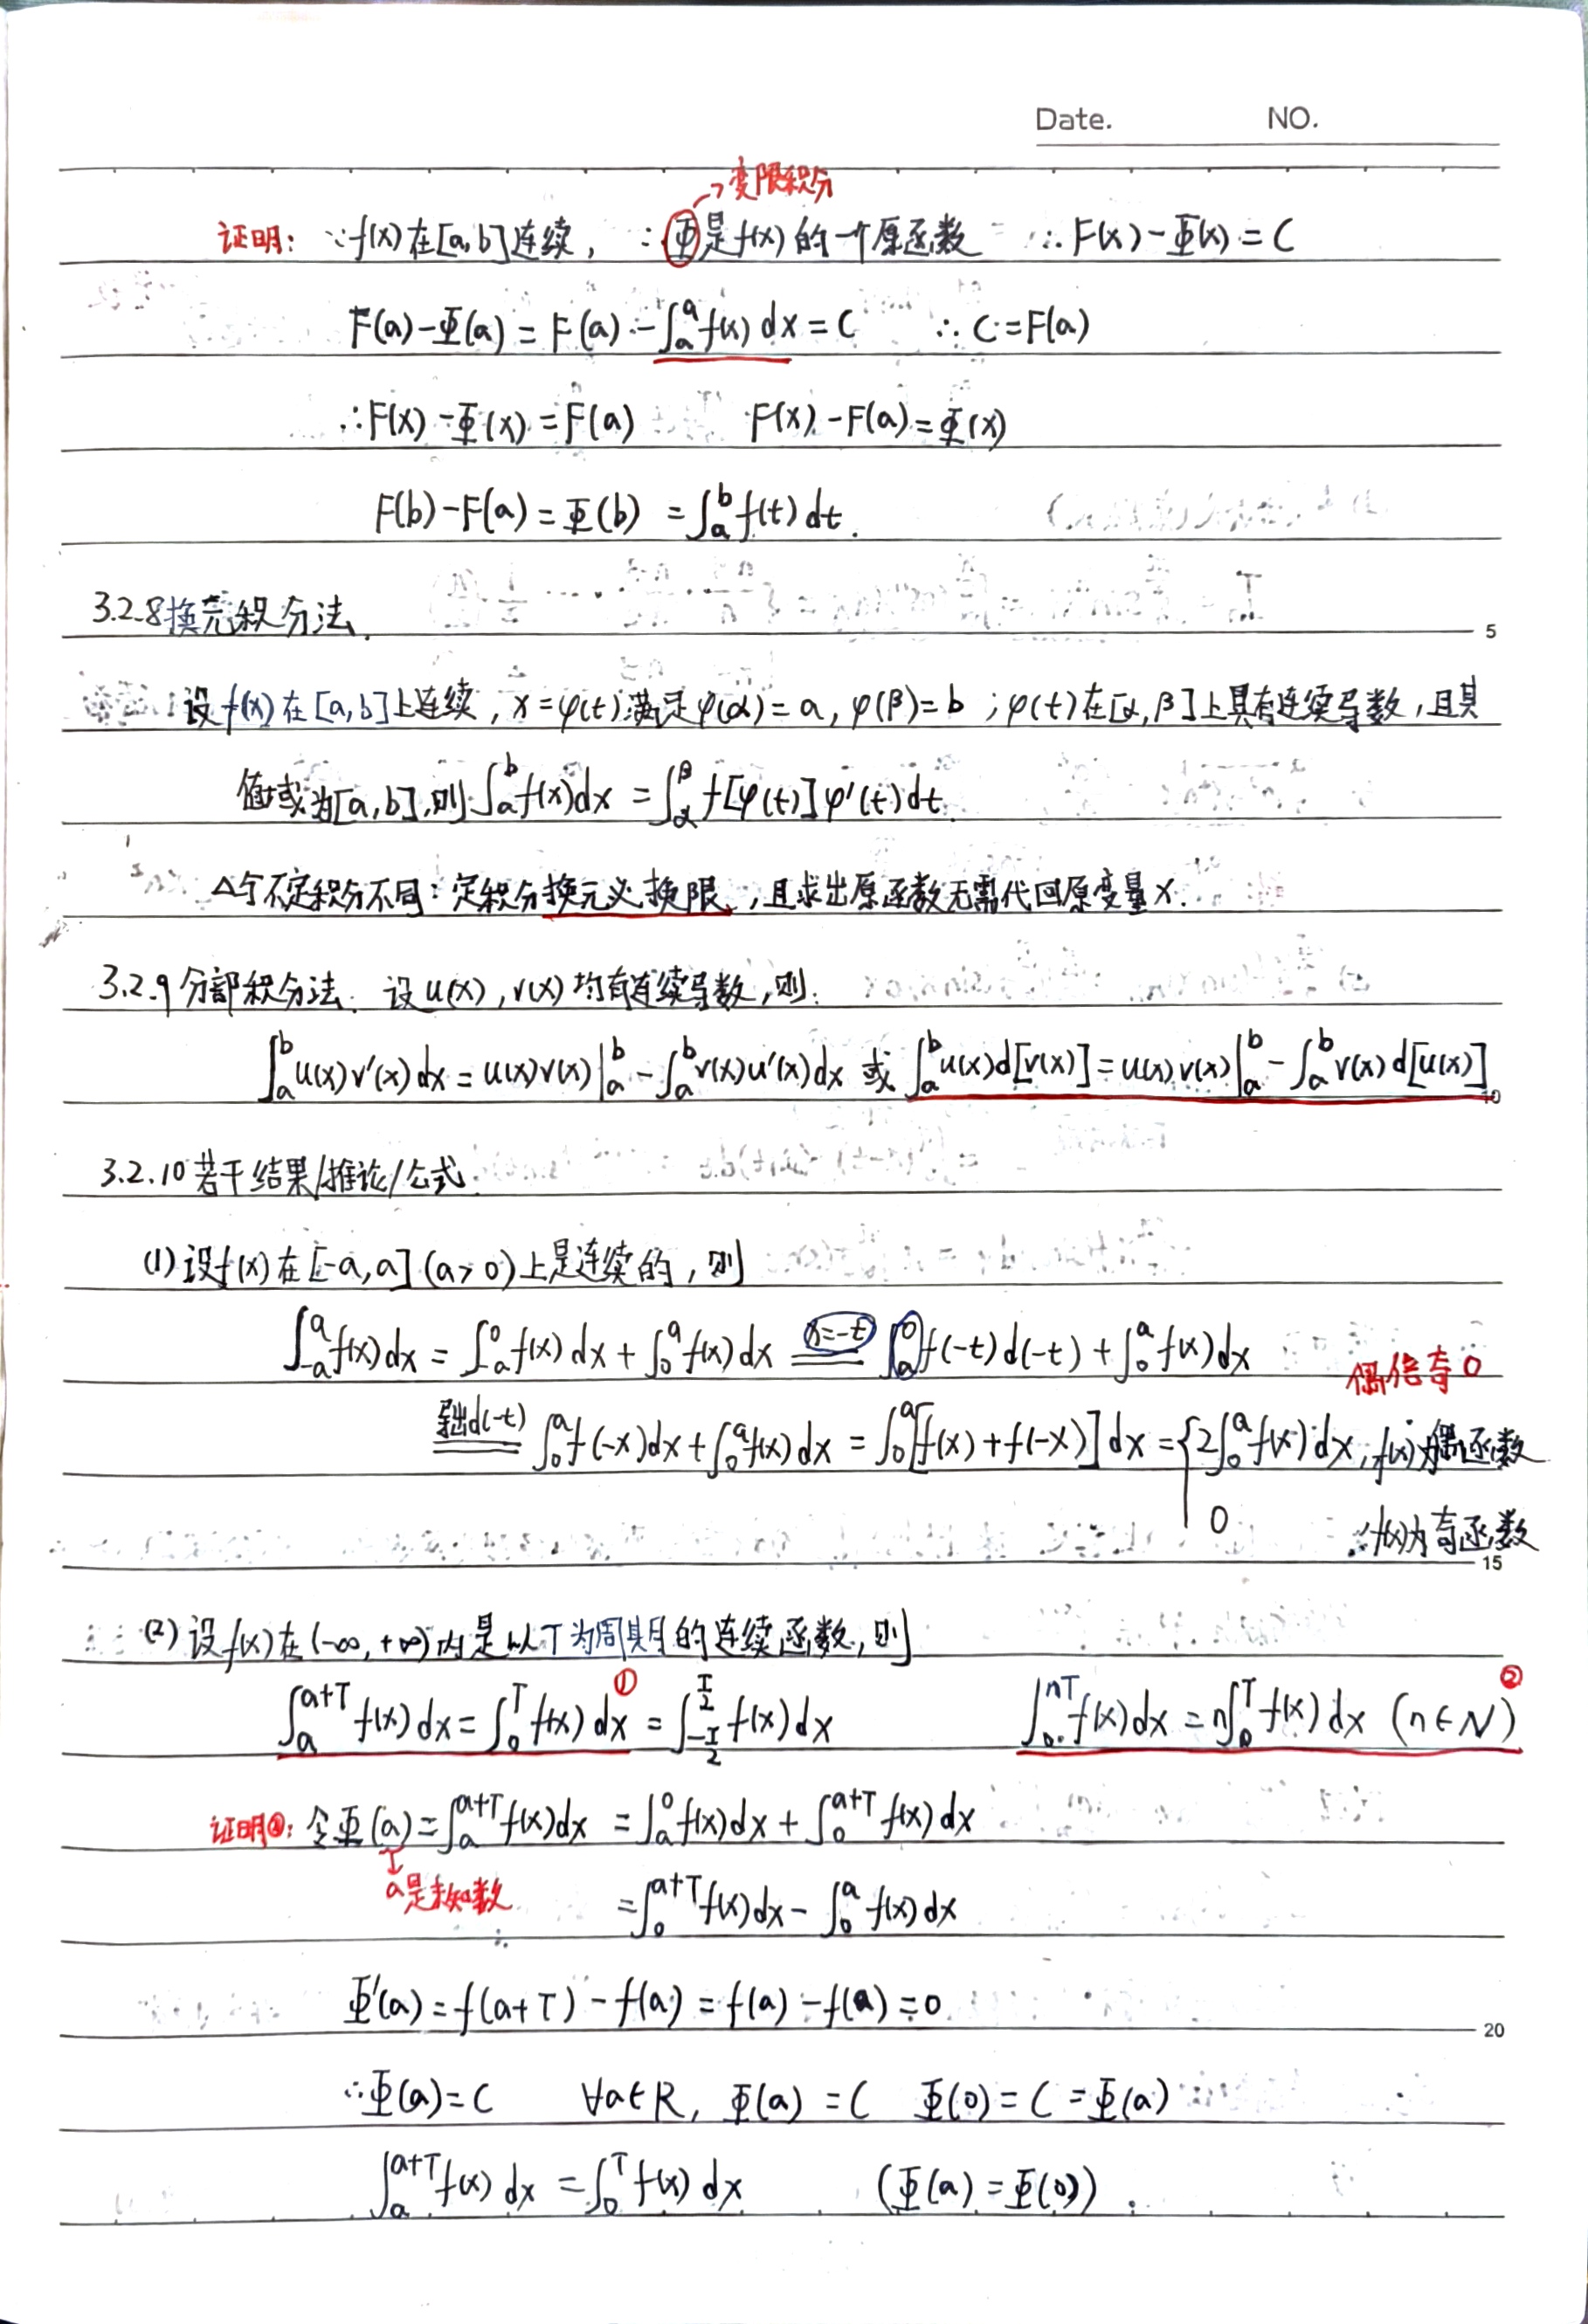 Date. NO.
→变限积分
证明: ∵f(x)在[a,b]连续, ∴Φ是f(x)的一个原函数 ∴F(x)-Φ(x)=C
F(a)-Φ(a)=F(a)-∫ₐᵃf(x)dx=C ∴C=F(a)
∴F(x)-Φ(x)=F(a) F(x)-F(a)=Φ(x)
F(b)-F(a)=Φ(b)=∫ₐᵇf(t)dt.
3.2.8换元积分法.
5
设f(x)在[a,b]上连续,x=φ(t)满足φ(α)=a,φ(β)=b;φ(t)在[α,β]上具有连续导数,且其
值域为[a,b],则∫ₐᵇf(x)dx=∫_α^β f[φ(t)]φ'(t)dt.
△与不定积分不同:定积分换元必换限,且求出原函数无需代回原变量x.
3.2.9分部积分法. 设u(x),v(x)均有连续导数,则:
∫ₐᵇu(x)v'(x)dx=u(x)v(x)|ₐᵇ-∫ₐᵇv(x)u'(x)dx 或 ∫ₐᵇu(x)d[v(x)]=u(x)v(x)|ₐᵇ-∫ₐᵇv(x)d[u(x)]
10
3.2.10若干结果/推论/公式.
(1)设f(x)在[-a,a](a>0)上是连续的,则
∫_{-a}^a f(x)dx=∫_{-a}^0 f(x)dx+∫_0^a f(x)dx x=-t ∫_a^0 f(-t)d(-t)+∫_0^a f(x)dx
偶倍奇0
导出d(-t) ∫_0^a f(-x)dx+∫_0^a f(x)dx=∫_0^a[f(x)+f(-x)]dx={2∫_0^a f(x)dx,f(x)为偶函数
0 ,f(x)为奇函数
15
(2)设f(x)在(-∞,+∞)内是以T为周期的连续函数,则
∫_a^{a+T} f(x)dx=∫_0^T f(x)dx①=∫_{-T/2}^{T/2} f(x)dx ∫_0^{nT} f(x)dx=n∫_0^T f(x)dx (n∈N)②
证明①:令Φ(a)=∫_a^{a+T} f(x)dx=∫_a^0 f(x)dx+∫_0^{a+T} f(x)dx
a是未知数
=∫_0^{a+T} f(x)dx-∫_0^a f(x)dx
Φ'(a)=f(a+T)-f(a)=f(a)-f(a)=0
20
∴Φ(a)=C ∀a∈R, Φ(a)=C Φ(0)=C=Φ(a)
∫_a^{a+T} f(x)dx=∫_0^T f(x)dx (Φ(a)=Φ(0)).